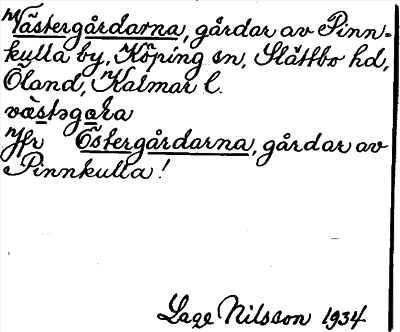 Västergårdarna, gårdar av Pinn-
kulla by, Köping sn, Slättbo hd,
Öland, Kalmar l.
væstəgɑɽa
Jfr Östergårdarna, gårdar av
Pinnkulla!
Lage Nilsson 1934